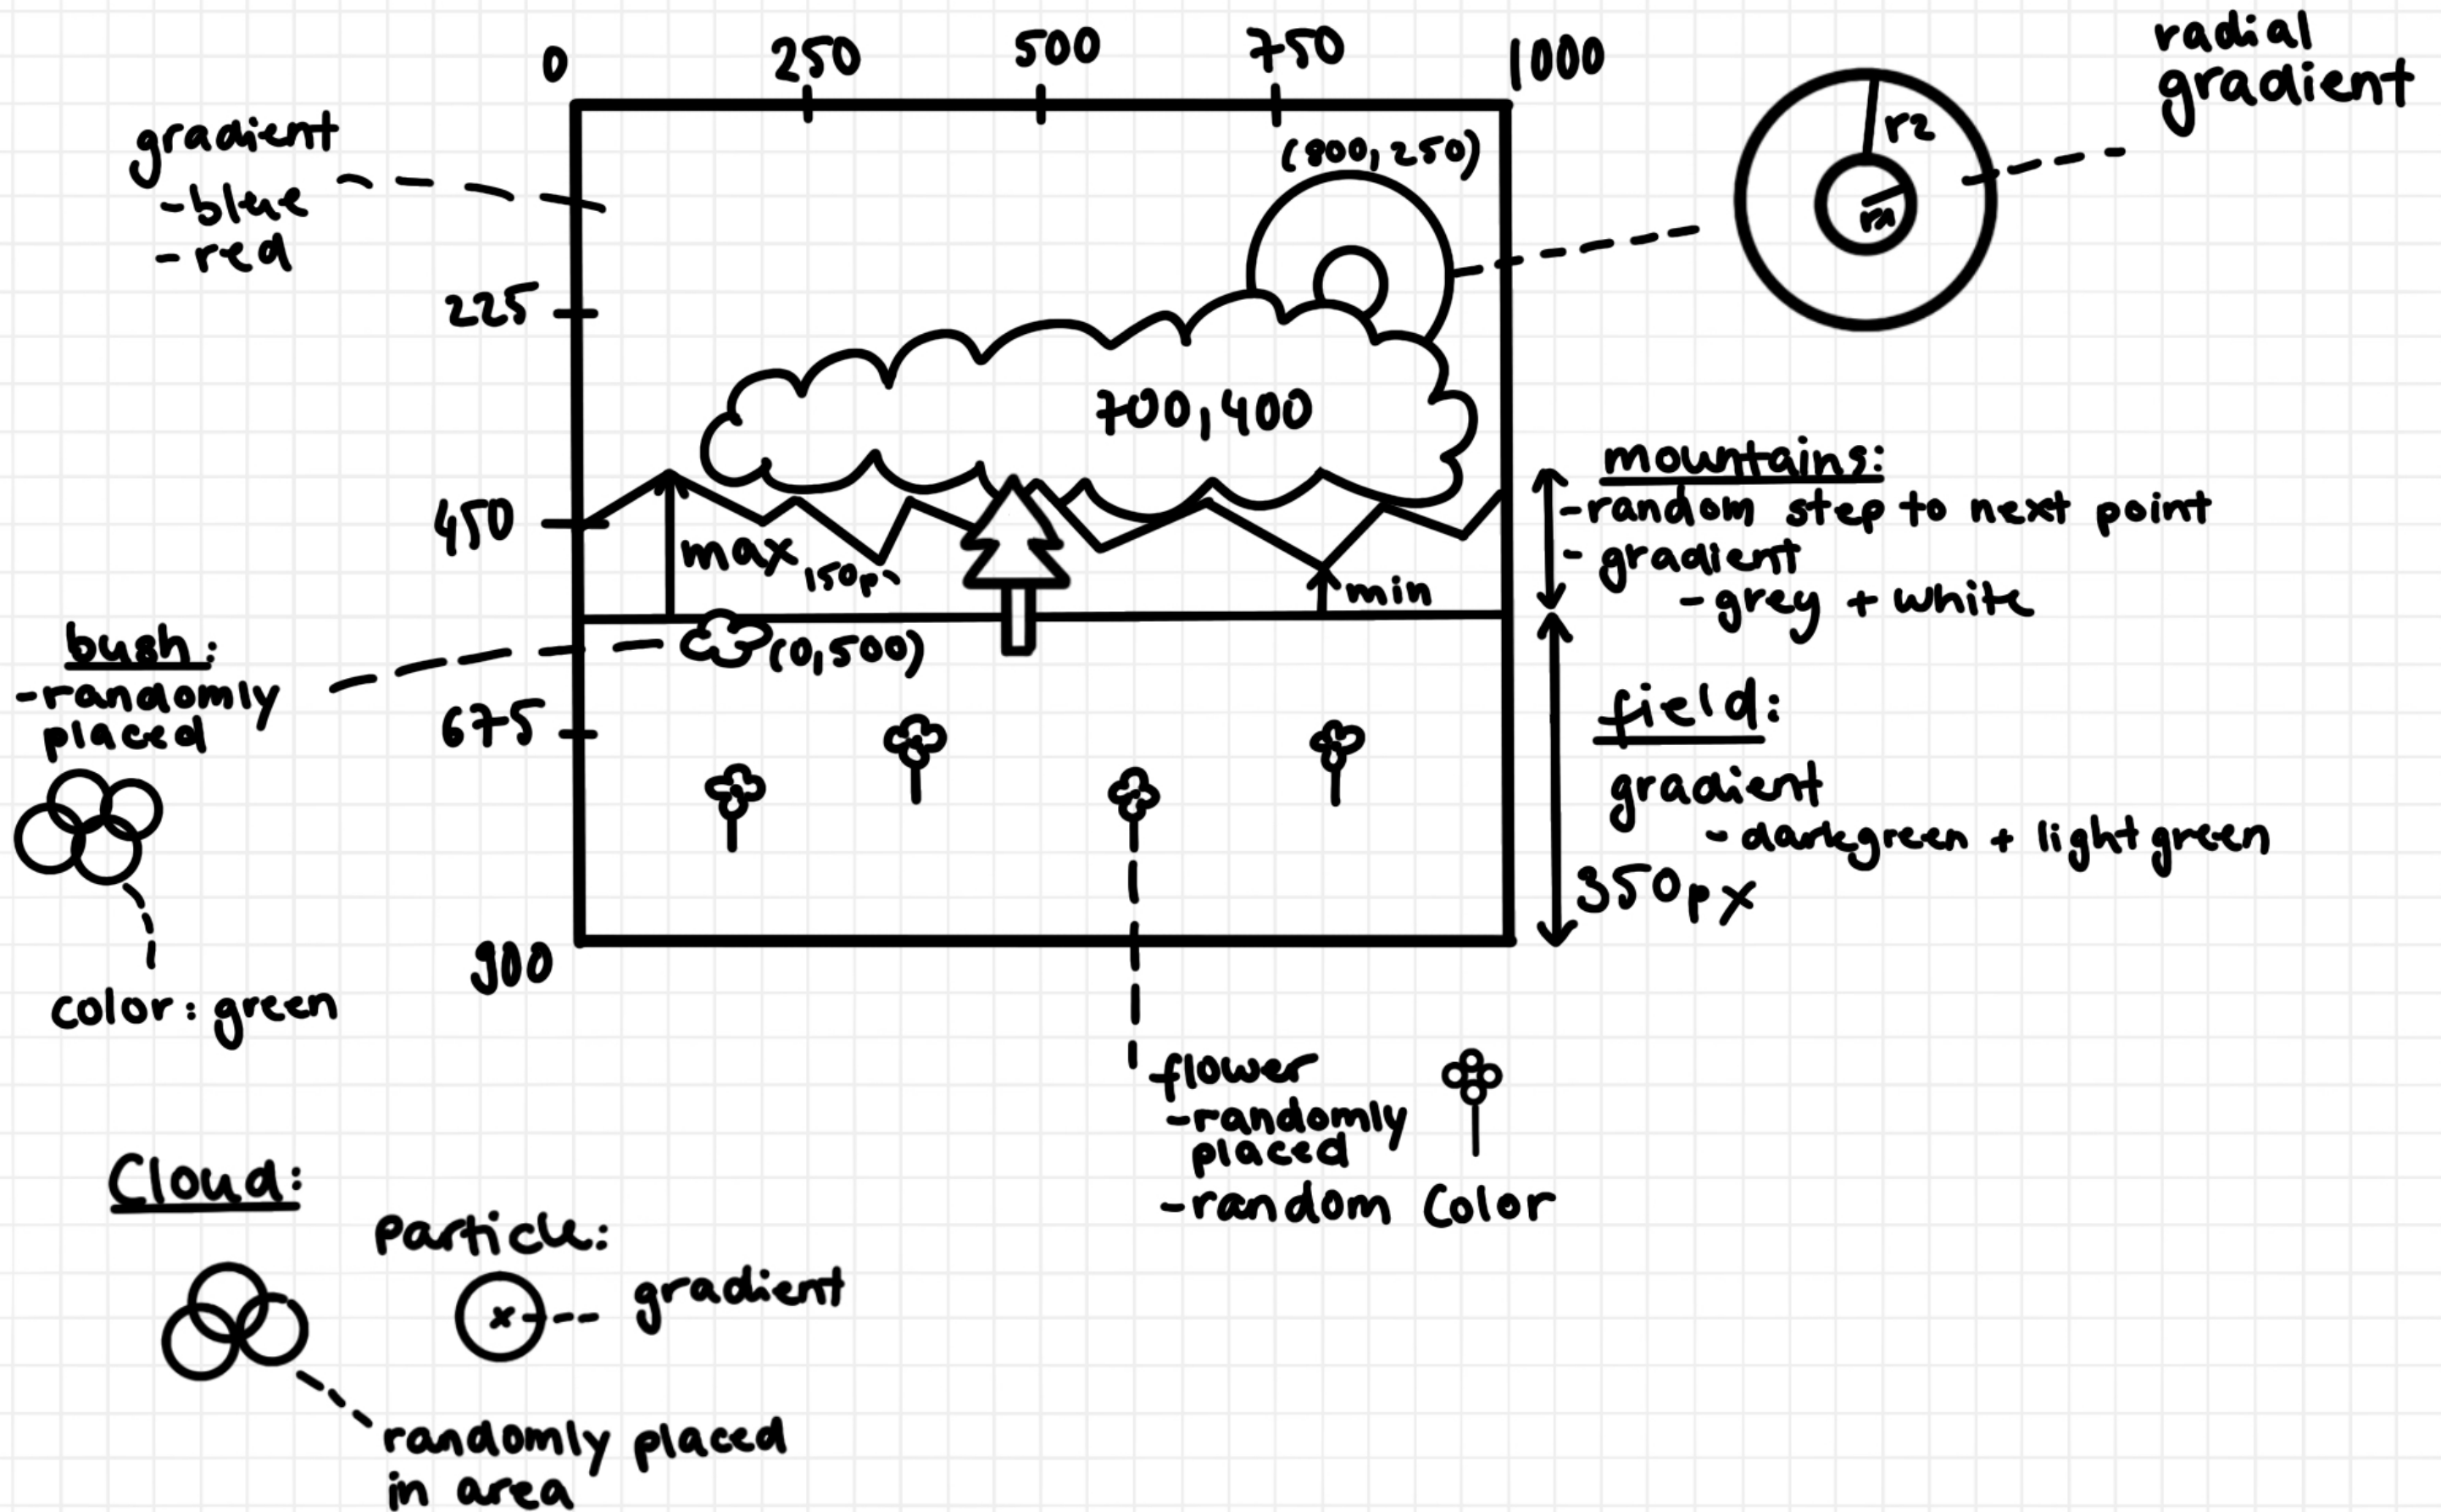 0
250
500
750
1000
radial
gradient
r2
gradient
-blue
-red
(800,250)
225
700,400
mountains:
-random step to next point
- gradient
- grey + white
450
max
min
bush:
-randomly
placed
(0,500)
675
field:
gradient
- darkgreen + lightgreen
350px
900
color: green
flower
-randomly
placed
-random Color
Cloud:
Particle:
gradient
randomly placed
in area